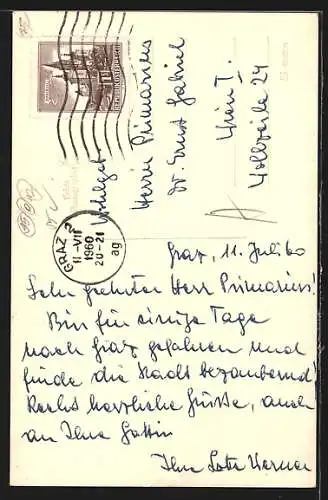 GRAZ 2
11.-VII
1960
20-21
ag
Wohlgeb.
Herrn Primarius
Dr. Ernst Gabriel
Wien I.
Wollzeile 24
Graz, 11. Juli 60
Sehr geehrter Herr Primarius!
Bin für einige Tage
nach Graz gefahren und
finde die Stadt bezaubernd!
Recht herzliche Grüsse, auch
an Ihre Gattin
Ihre Lotte Werner